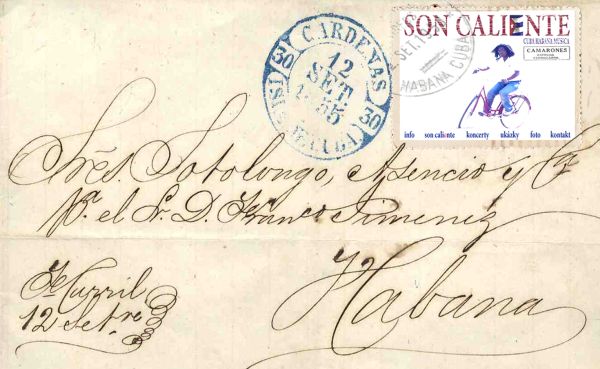 CARDENAS
30 30
12
SET.
1855
ISLA DE CUBA
HABANA CUBA
SON CALIENTE
CUBA HABANA MUSICA
CAMARONES
info son caliente koncerty ukázky foto kontakt
Sres. Sotolongo, Asencio y Ca
Pa. el Sr. D. Franco Jimenez
Habana
12 Setre